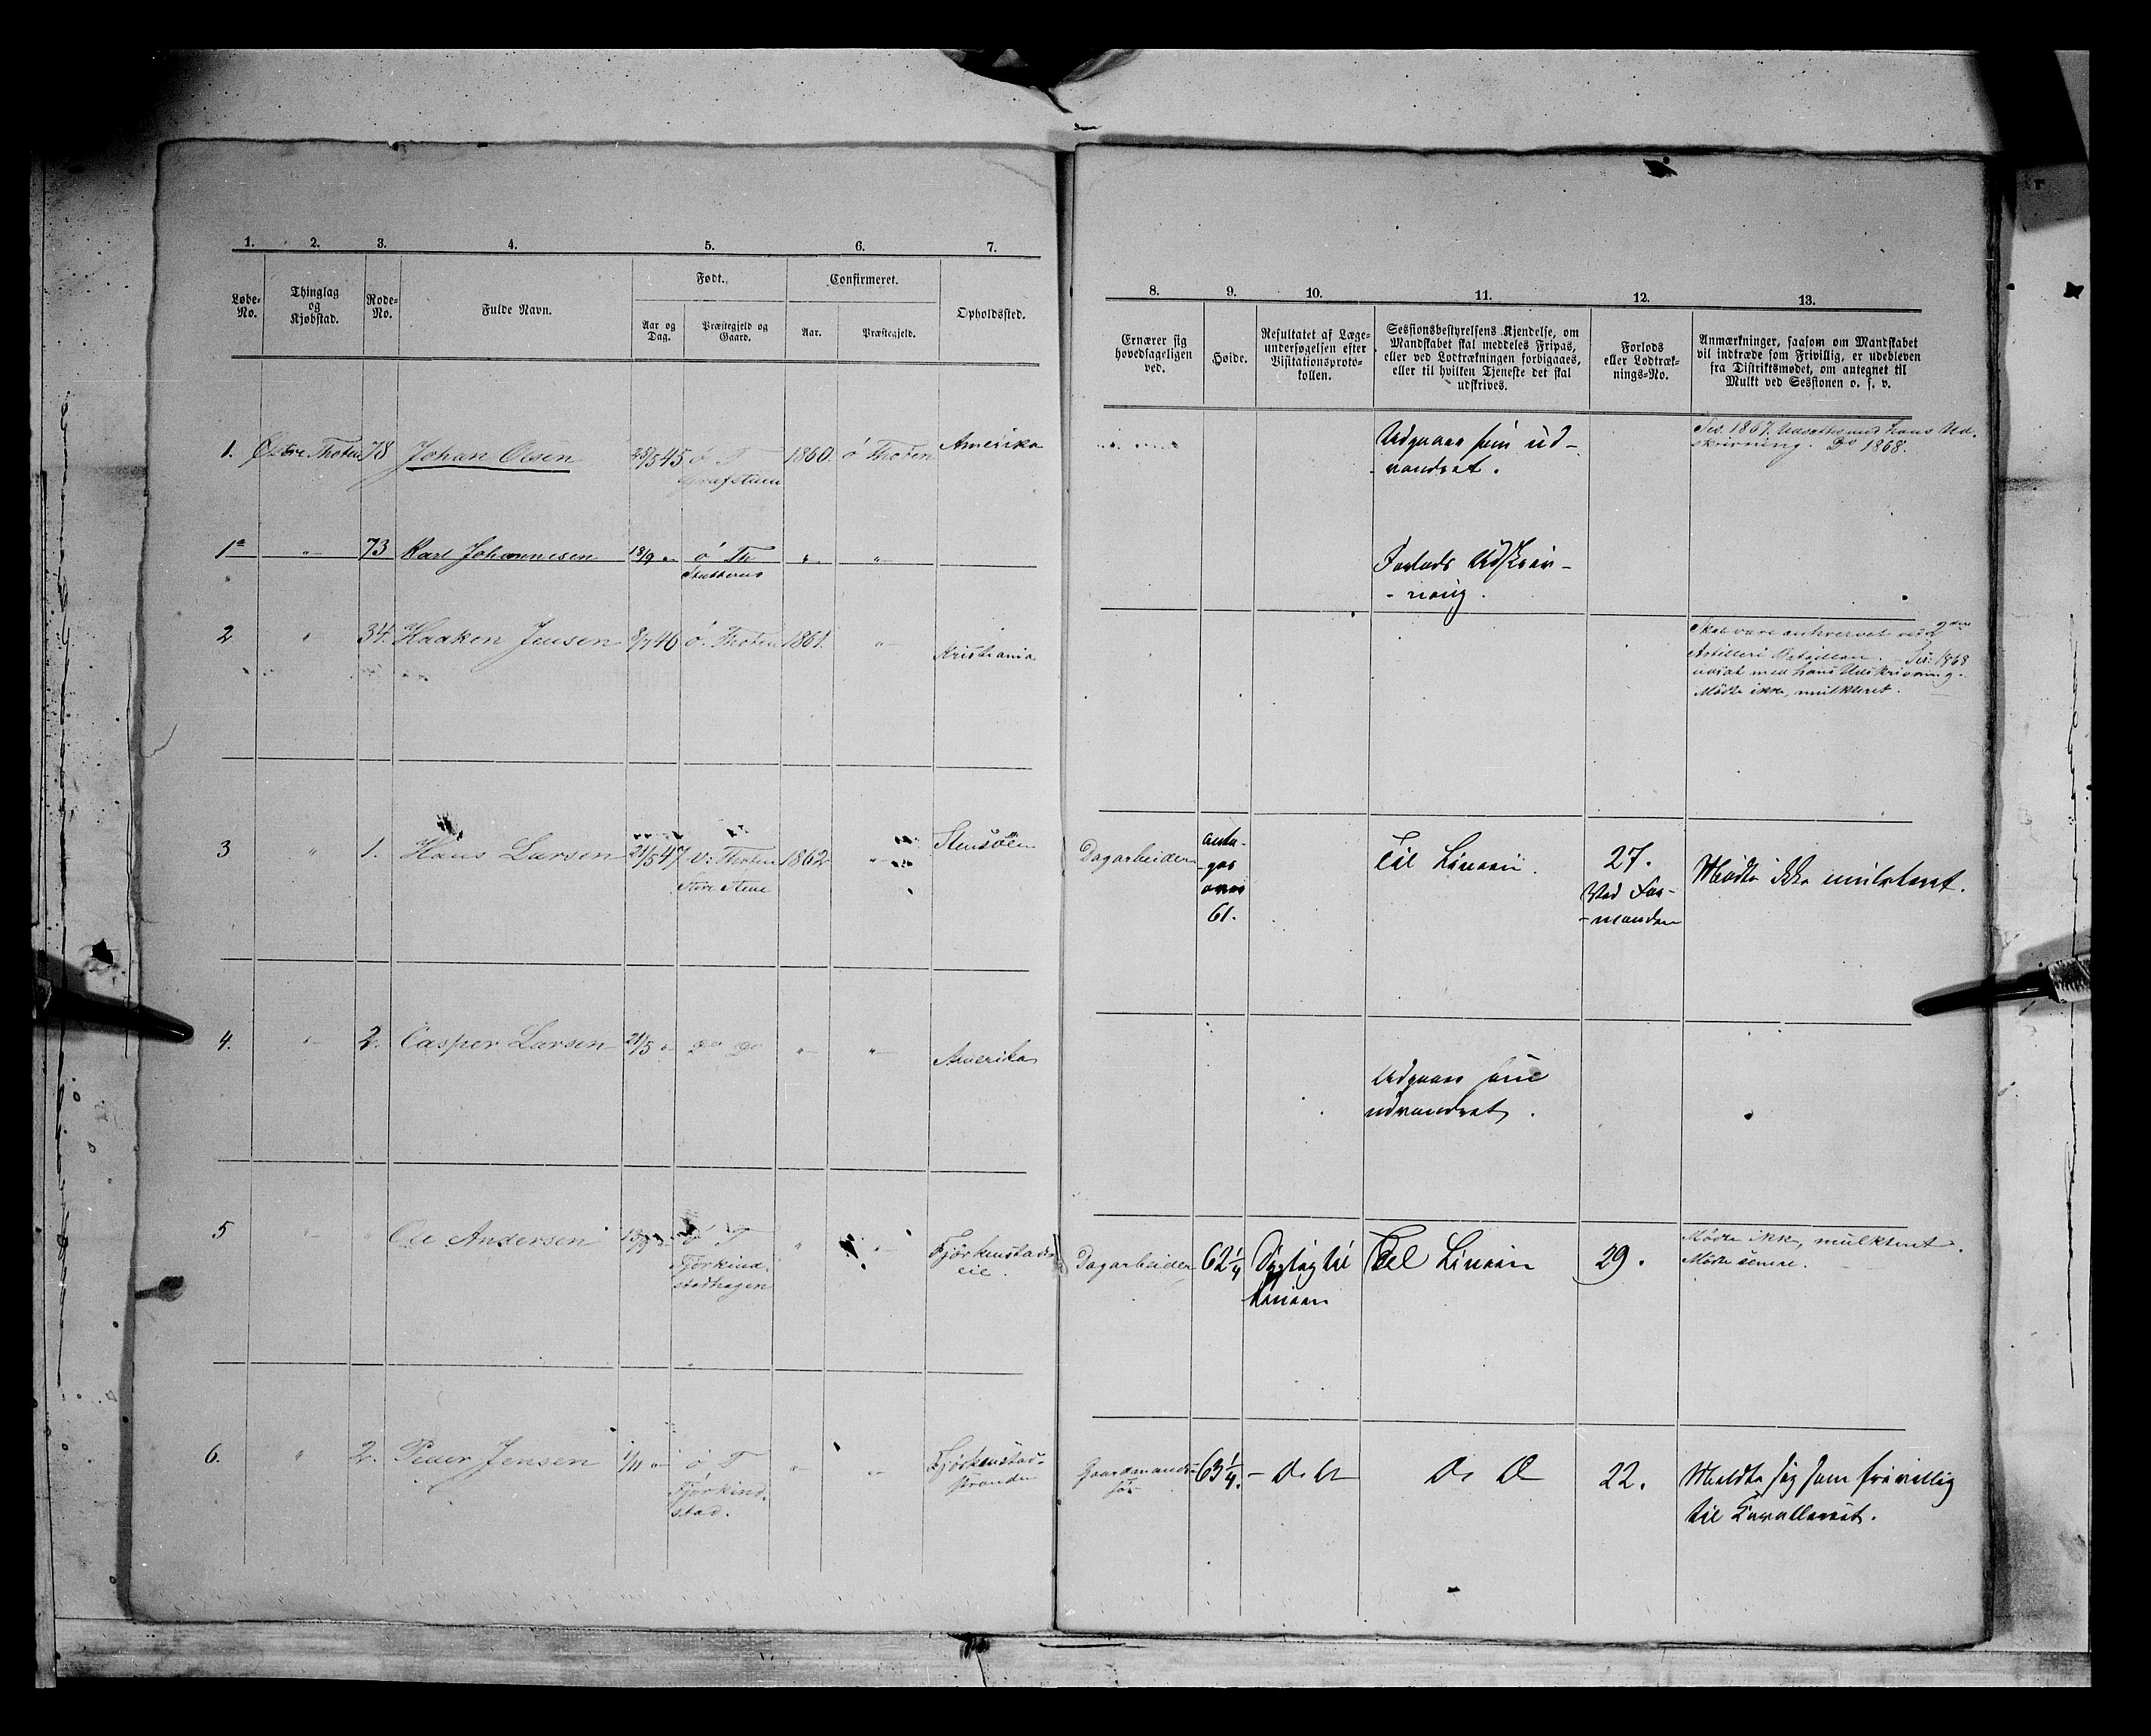 1. 2. 3. 4. 5. 6. 7.
Løbe-No. Thinglag og Kjøbstad. Rode-No. Fulde Navn. Født. Confirmeret. Opholdssted.
Aar og Dag. Præstegjeld og Gaard. Aar. Præstegjeld.
1. Østre Thoten 78 Johan Olsen 25/5 45 ø T 1860. ø Thoten Amerika
Grafstuen
1a " 73 Karl Johannesen 18/9 " ø Th " "
2 " 34. Haakon Jensen 8/7 46 ø. Thoten 1861. " Kristiania
3 " 1. Hans Larsen 21/5 47 v: Thoten 1862 "
4. " 2. Casper Larsen 21/5 " Do Do " " Amerika
5 " " Ole Andersen 13/9 " ø T " " Fjørkenstad
eie.
Fjørkind.
stadhagen
6. " 2. Peder Jensen 1/11 " ø T " " Fjørkenstad-
Fjørkind. stranden
stad.
8. 9. 10. 11. 12. 13.
Ernærer sig hovedsageligen ved. Høide. Resultatet af Læge-undersøgelsen efter Visitationsproto-kollen. Sessionsbestyrelsens Kjendelse, om Mandskabet skal meddeles Fripas, eller ved Lodtrækningen forbigaaes, eller til hvilken Tjeneste det skal udskrives. Forlods eller Lodtræk-nings-No. Anmærkninger, saasom om Mandskabet vil indtræde som Frivillig, er udebleven fra Distriktsmødet, om antegnet til Mulkt ved Sessionen o. s. v.
Udgaar som ud-
vandret.
Ses. 1867. Udsættes med hans Ud-
skrivning. Do 1868.
Forlods Udskriv-
-ning.
Skal være anhvervet ved 2den
Artilleri Bataillon. Ses: 1868
udsat med hans Udskrivning.
Mødte ikke, mulkteret.
Dagarbeider anta-
ges
over
61.
Til Linien.
27.
Ved For-
-manden
Mødte ikke mulkteret.
Udgaar som
udvandret.
Dagarbeider 62 1/4 Dygtig til
Linien
Til Linien 29.
Mødte ikke, mulkteret.
Mødte senere.
Gaardmands-
søn
63 1/4. Do Do Do Do 22.
Meldte sig som frivillig
til Kavalleriet.